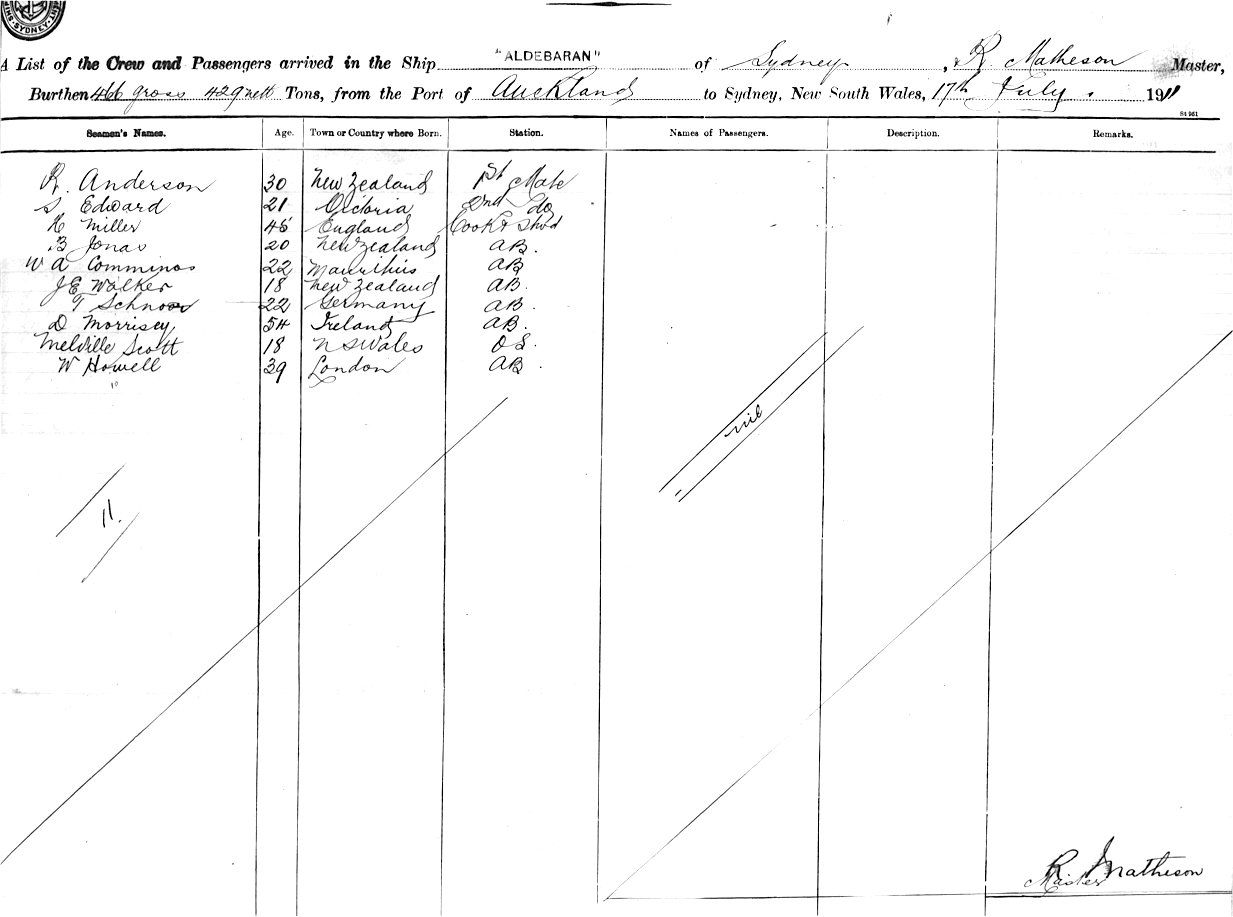 SYDNEY
A List of the Crew and Passengers arrived in the Ship "ALDEBARAN" of Sydney, R Matheson Master,
Burthen 466 gross 429 nett Tons, from the Port of Auckland to Sydney, New South Wales, 17th July. 1911
St 951
Seamen's Names. Age. Town or Country where Born. Station. Names of Passengers. Description. Remarks.
R. Anderson 30 New Zealand 1st Mate
S Edward 21 Victoria 2nd do
H Miller 45 England Cook & Stwd
B Jonas 20 New Zealand AB.
W A Comminos 22 Mauritius AB
J E Walker 18 New Zealand AB.
T Schnoor 22 Germany AB.
D Morrisey 54 Ireland AB.
Melville Scott 18 N S Wales O S.
W Howell 39 London AB.
10
nil
11.
R Matheson
Master